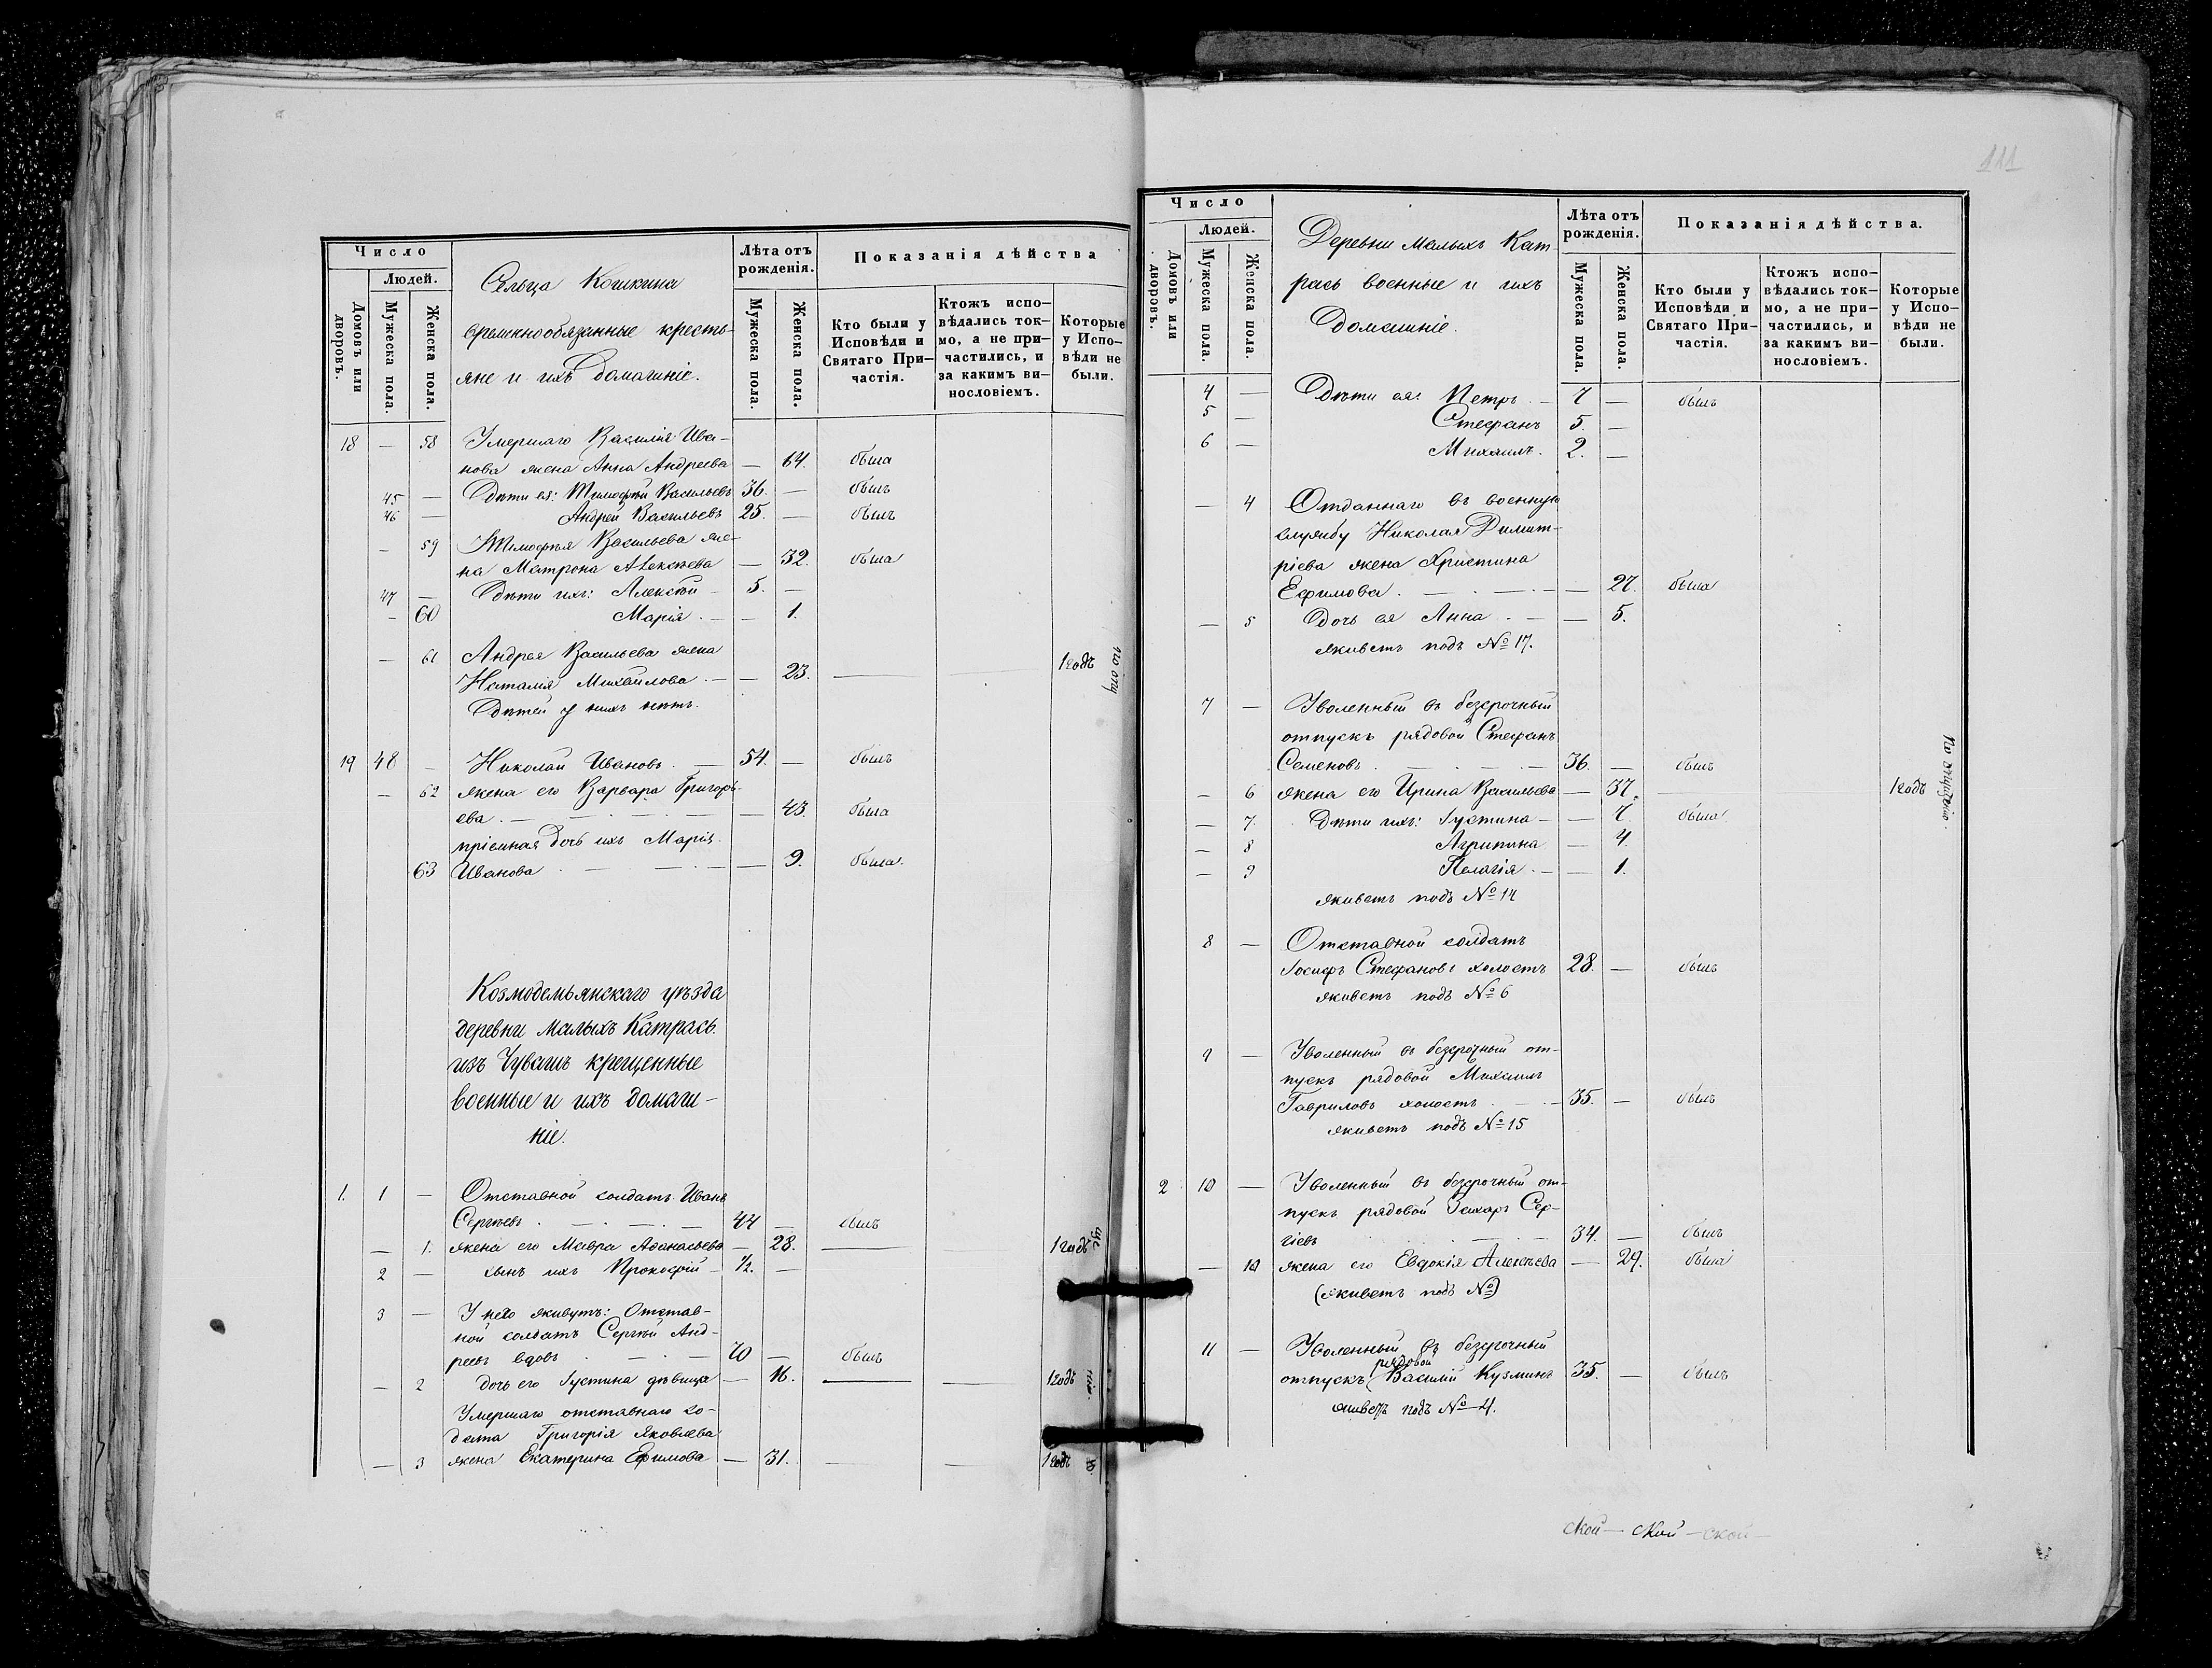 Число
Людей.
Домовъ или дворовъ.
Мужеска пола.
Женска пола.
Сельца Кошкина
временнообязанные кресть-
яне и ихъ домашніе.
Лѣта отъ рожденія.
Мужеска пола.
Женска пола.
Показанія дѣйства
Кто были у Исповѣди и Святаго При-частія.
Ктожъ испо-вѣдались ток-мо, а не при-частились, и за какимъ ви-нословіемъ.
Которые у Испо-вѣди не были.
18 — 58 Умершаго Василія Ива-
нова жена Анна Андреева — 64. была
45 — Дѣти ея: Тимофѣй Васильевъ 36. — былъ
46 — Андрей Васильевъ 25. — былъ
— 59 Тимофѣя Васильева же-
на Матрона Алексѣева — 32. была
47 — Дѣти ихъ: Алексѣй 5. —
— 60 Марія. — 1.
— 61 Андрея Васильева жена
Наталія Михайлова — 23. — 1 годъ
Дѣтей у нихъ нѣтъ.
19 48 — Николай Ивановъ. 54. — былъ
— 62 жена его Варвара Григорь-
ева. — 43. была
пріемная дочь ихъ Марія
63 Иванова — 9. была.
Козмодемьянскаго уѣзда
деревни Малыхъ Катрась
изъ Чувашъ крещенные
военные и ихъ домаш-
ніе.
1. 1 — Отставной солдатъ Иванъ
Сергѣевъ. 44 — былъ
— 1. жена его Мавра Аѳанасьева — 28. — 1 годъ
2 — сынъ ихъ Прокофій — 1/2. —
3 — У него живутъ: Отстав-
ной солдатъ Сергѣй Анд-
реевъ вдовъ 70 — былъ
— 2 дочь его Іустина дѣвица — 16. — 1 годъ
Умершаго отставнаго со-
дата Григорія Яковлева
— 3 жена Екатерина Ефимова — 31. — 1 годъ
111
Число
Людей.
Домовъ или дворовъ.
Мужеска пола.
Женска пола.
Деревни Малыхъ Кат-
рась военные и ихъ
домашніе.
Лѣта отъ рожденія.
Мужеска пола.
Женска пола.
Показанія дѣйства.
Кто были у Исповѣди и Святаго При-частія.
Ктожъ испо-вѣдались ток-мо, а не при-частились, и за какимъ ви-нословіемъ.
Которые у Испо-вѣди не были.
4 — Дѣти ея: Петръ. — 7 — былъ
5 — Стефанъ 5. —
6 — Михаилъ. 2. —
— 4 Отданнаго въ военную
службу Николая Димит-
ріева жена Христина
Ефимова. — 27. была
— 5 Дочь ея Анна. — 5.
живетъ подъ № 17.
7 — Уволенный въ безсрочный
отпускъ рядовой Стефанъ
Семеновъ. 36. — былъ
— 6 жена его Ирина Васильева — 37. — 1 годъ
— 7. Дѣти ихъ: Іустина — 7. была
— 8 Агрипина — 4.
— 9 Пелагія. — 1.
живетъ подъ № 14
8 — Отставной солдатъ
Іосифъ Стефановъ холостъ 28. — былъ
живетъ подъ № 6
9 — Уволенный въ безсрочный от-
пускъ рядовой Михаилъ
Гавриловъ холостъ 35. — былъ
живетъ подъ № 15
2 10 — Уволенный въ безсрочный от-
пускъ рядовой Захаръ Сер-
гіевъ 34. — былъ
— 10 жена его Евдокія Алексѣева — 29. была
(живетъ подъ №)
11 — Уволенный въ безсрочный
рядовой
отпускъ Василій Кузминъ 35. — былъ
живетъ подъ № 4.
ской — ской — ской —